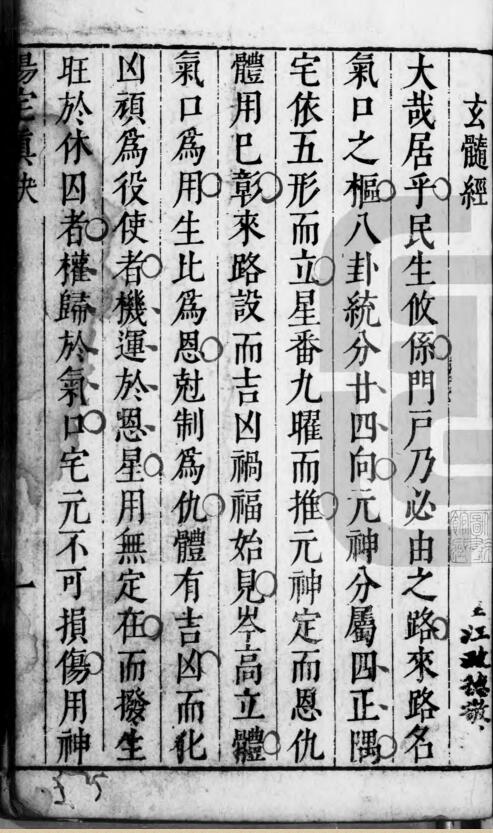 玄髓經
大哉居乎民生攸係門戶乃必由之路來路名
氣口之樞八卦統分廿四向元神分屬四正隅
宅依五形而立星番九曜而推元神定而恩仇
體用巳彰來路設而吉凶禍福始見岑高立體
氣口爲用生比爲恩尅制爲仇體有吉凶而化
凶頑爲役使者機運於恩星用無定在而撥生
旺於休囚者權歸於氣口宅元不可損傷用神
陽宅真訣
一